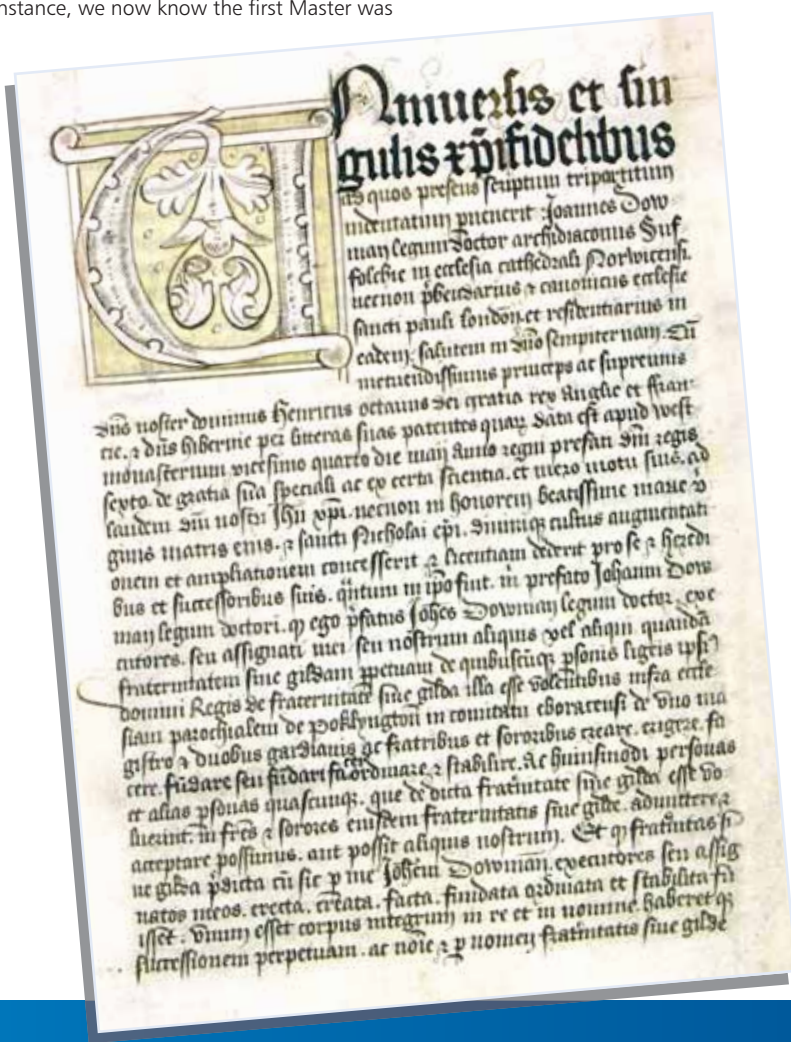 nstance, we now know the first Master was
Uniuersis et sin
gulis xp̄ifidelibus
ad quos presens scriptum tripartitum
indentatum puenerit Joannes Dow
man legum doctor archidiaconus Suf
folchie in ecclesia cathedrali Norwicensi.
necnon p̄bendarius ⁊ canonicus ecclesie
sancti pauli london. et residentiarius in
eadem. salutem in dn̄o sempiternam. Cū
metuendissimus princeps ac supremus
dn̄s noster dominus Henricus octauus dei gratia rex Anglie et ffran
cie. ⁊ dn̄s hibernie per litteras suas patentes quaꝝ data est apud west
monasterium vicesimo quarto die maij Anno regni prefati dn̄i regis
sexto. de gratia sua speciali ac ex certa scientia. et mero motu suis. ad
laudem dn̄i nostri Jhū xp̄i. necnon in honorem beatissime marie v̄
ginis matris eius. ⁊ sancti Nicholai ep̄i. diuiniqꝫ cultus augmentati
onem et ampliationem concesserit ⁊ licentiam dederit pro se ⁊ heredi
bus et successoribus suis. q̄ntum in ip̄o fuit. m̄ prefato Johanni Dow
man legum doctori. qꝫ ego p̄fatus Joh̄es Dowman legum doctor. exe
cutores. seu assignati mei seu nostrum aliquis vel aliqui quandā
fraternitatem siue gildam ꝑpetuam de quibuscūqꝫ ꝑsonis ligeis ipsiꝰ
domini Regis de fraternitate siue gilda illa esse volentibus infra eccle
siam parochialem de Poklyngton in comitatu eboracensi de vno ma
gistro ⁊ duobus gardianis ac fratribus et sororibus creare. erigere. fa
cere. fūdare seu fūdari facere ordinare. ⁊ stabilire. Ac huiusmodi personas
et alias ꝑsonas quascunqꝫ. que de dicta frat̄nitate siue gilda esse vo
luerint. in fr̄es ⁊ sorores eiusdem fraternitatis siue gilde. admittere ⁊
acceptare possimus. aut possit aliquis nostrum. Et qꝫ frat̄nitas si
ue gilda p̄dicta cū sic ꝑ me Joh̄em Dowman. executores seu assig
natos meos. erecta. creata. facta. fundata ordinata et stabilita fu
isset. vnum esset corpus integrum in re et in nomine. haberet qꝫ
successionem perpetuam. ac noīe ⁊ ꝑ nomen frat̄nitatis siue gilde